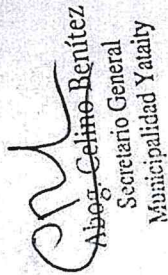 Abog. Celino Benítez
Secretario General
Municipalidad Yataity